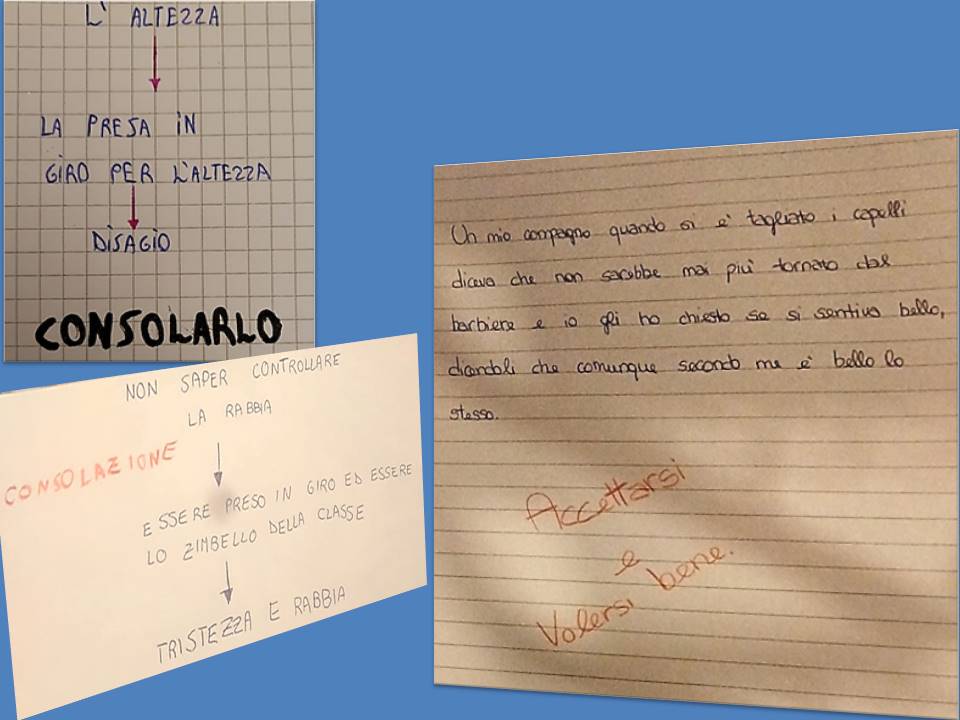 L' ALTEZZA
LA PRESA IN
GIRO PER L'ALTEZZA
DISAGIO
CONSOLARLO
NON SAPER CONTROLLARE
LA RABBIA
CONSOLAZIONE
ESSERE PRESO IN GIRO ED ESSERE
LO ZIMBELLO DELLA CLASSE
TRISTEZZA E RABBIA
Un mio compagno quando si è tagliato i capelli
diceva che non sarebbe mai più tornato dal
barbiere e io gli ho chiesto se si sentiva bello,
dicendoli che comunque secondo me è bello lo
stesso.
Accettarsi
e
Volersi bene.